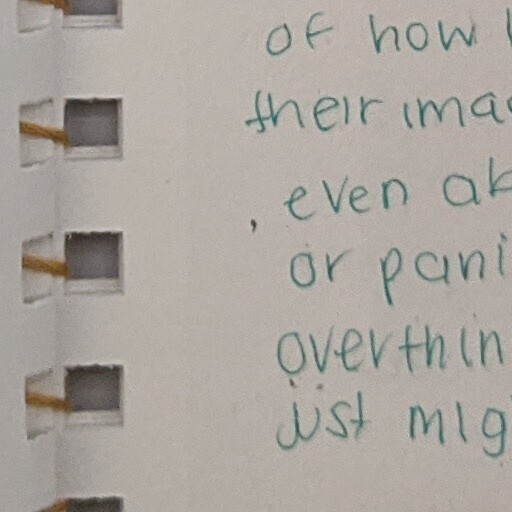 of how
their ima
even ab
or pani
overthin
just mig